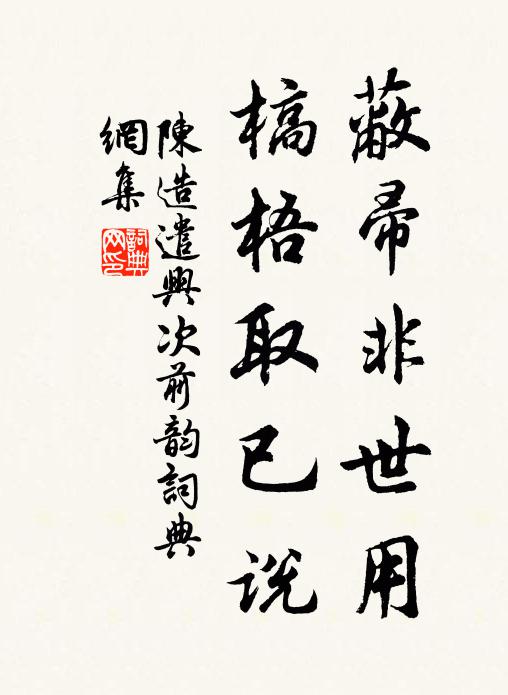 蔽帚非世用
槁梧取已說
陳造遣興次前韵詞典
網集
詞典網印